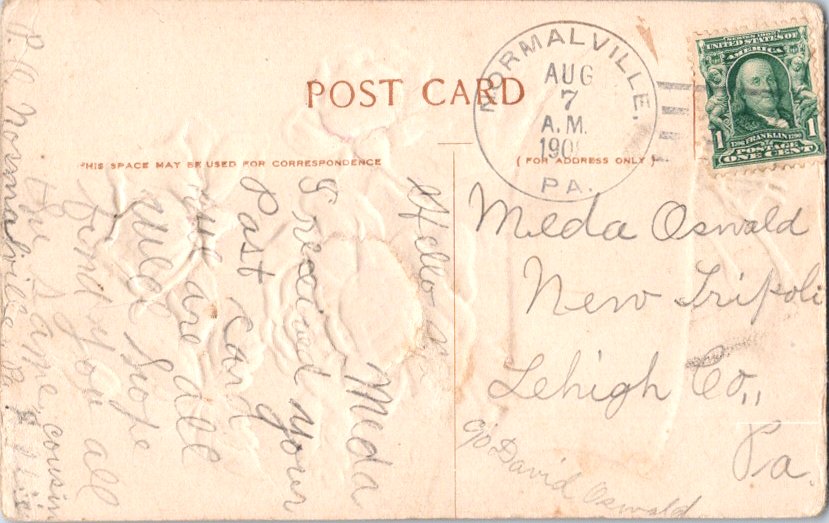 POST CARD
THIS SPACE MAY BE USED FOR CORRESPONDENCE
(FOR ADDRESS ONLY)
NORMALVILLE,
AUG
7
A.M.
190
PA.
SERIES 1902
UNITED STATES OF
AMERICA
1 FRANKLIN 1
POSTAGE
ONE CENT
Meda Oswald
New Tripoli
Lehigh Co.,,
Pa.
c/o David Oswald
Hello
Meda
I received your
Post Card
we are all
well hope
find you all
the same, cousin
Normalville Pa